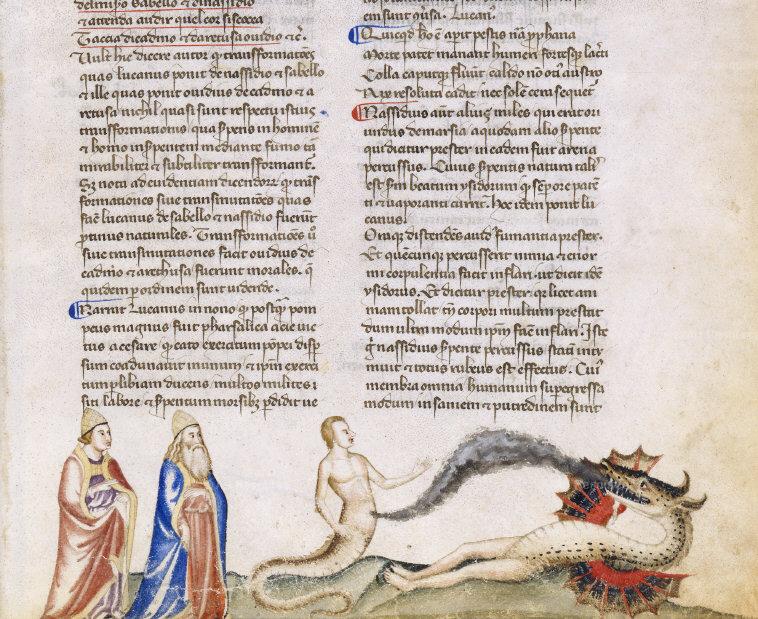 delmiso Sabello & dinassidio
& attenda audir quel cor si scocca
Taccia dicadmo & daretusa ouidio & c̄.
Uult hic dicere autor q̄ transformatōes
quas lucanus ponit de nassidio & sabello
& ille quas ponit ouidius de cadmo & a
retusa nichil quasi sunt respectu istius
transformationis qua spens in hominē
& homo in spentem mediante fumo tā
mirabiliter & subtiliter transformant̄.
Sz nota ad euidentiam dicendorꝝ q̄ trās
formationes siue transmutatōes quas
facit lucanus de sabello & nassidio fuerūt
prorsus naturales. Transformatōes ū
siue transmutationes facit ouidius de
cadmo & arethusa fuerunt morales. q̄
quidem p ordinem sunt uidende.
Narrat Lucanus in nono q̄ postqͣ pom
peus magnus fuit pharsalica acie uic
tus a cesare q̄ cato exercitum pōpei disp
sum coadunauit in unum & ipm exerci
tum p libiam ducens multos milites i
sui labore & spentum morsibꝫ pdidit ue
em sunt ꝯusa. Lucan̄.
Quicqd hō ē apit pestis nā pphana
Morte patet manant humeri fortesqꝫ lacti
Colla caputqꝫ fluūt calido nō oci austro
Nix resoluta cadit nec sole cera sequet̄
Nassidius aūt alius miles qui erat ori
undus de marsia a quodam alio spente
qui dicitur prester in eadem fuit arena
percussus. Cuius spentis natura tal'
est scdm beatum ysidorum q̄ sp ore patē
ti & uaporanti currit. Hoc idem ponit lu
canus.
Oraqꝫ distendēs auid' fumantia prester.
Et quēcunqꝫ percusserit nimia & enor
mi corpulentia facit inflari. ut dicit idē
ysidorus. Et dicitur prester qꝫ licet ani
mam tollat tn̄ corpori multum prestat
dum ultra modum ipm facit inflari. Iste
g̊ nassidius spente percussus statim intu
muit & totus rubeus est effectus. Cui'
membra omnia humanum supegressa
modum in saniem & putredinem sunt